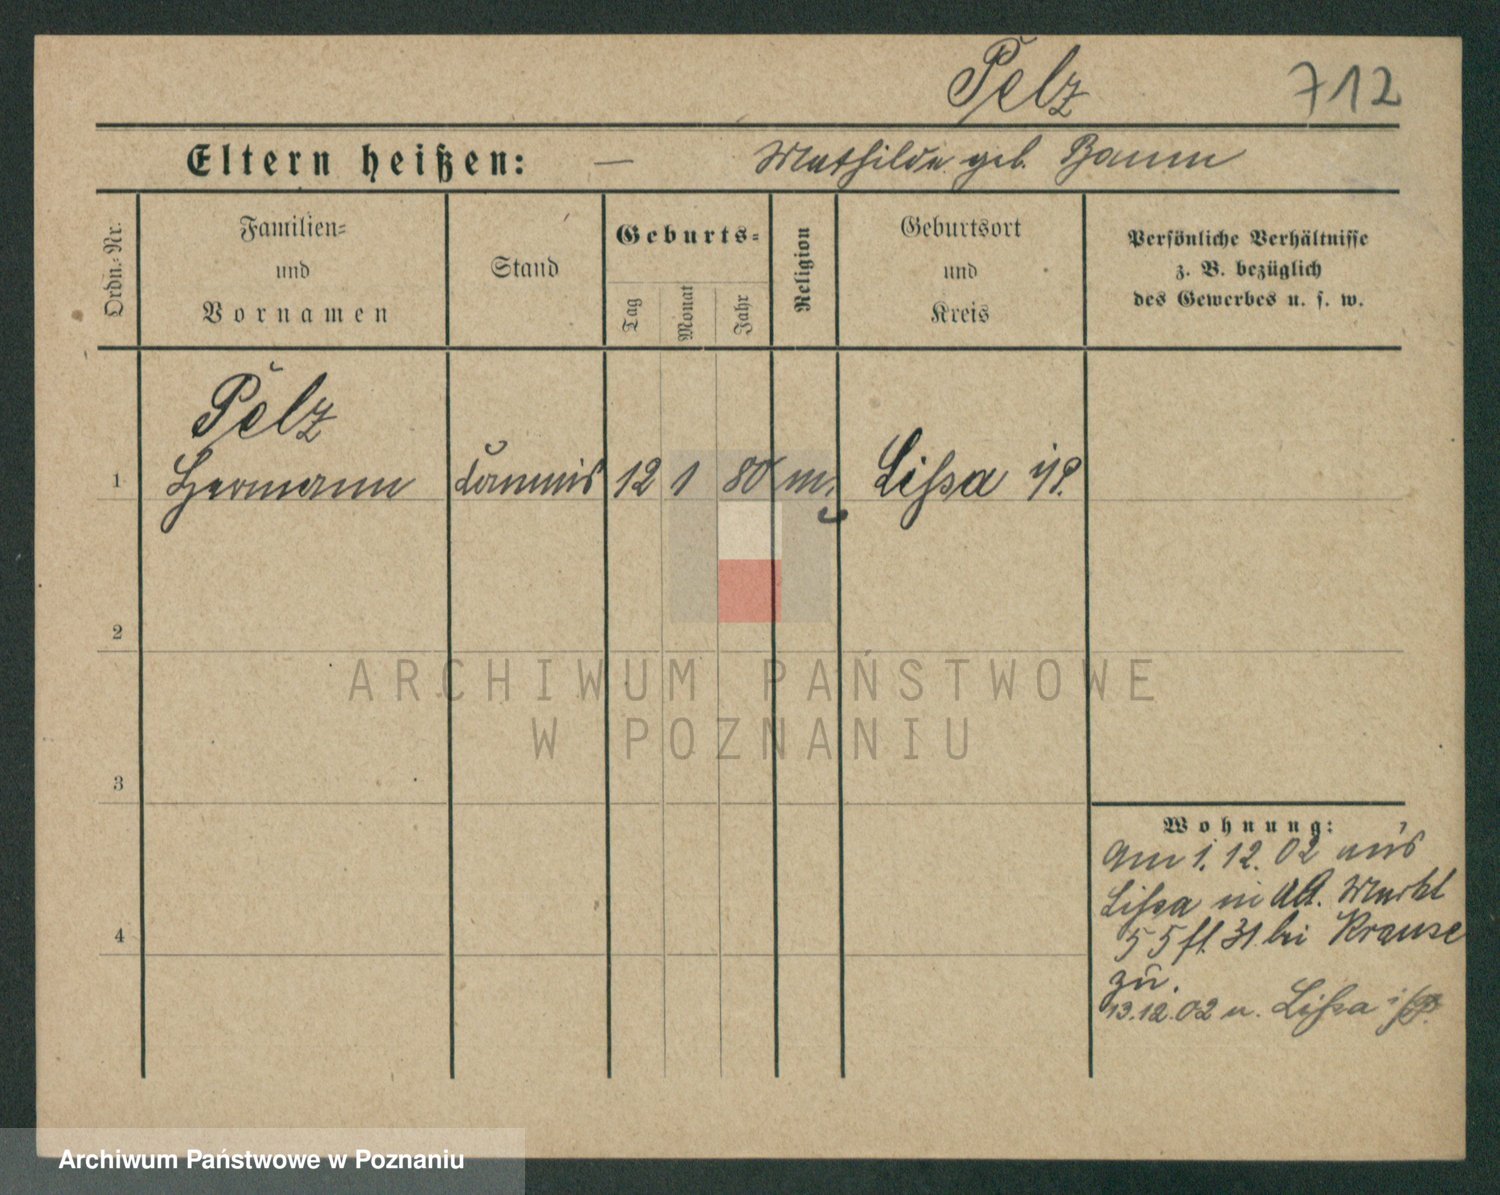 Pelz 712
Eltern heißen: — Mathilde geb. Baum
Ordn.-Nr.
Familien-
und
Vornamen
Stand
Geburts-
Tag
Monat
Jahr
Religion
Geburtsort
und
Kreis
Persönliche Verhältnisse
z. B. bezüglich
des Gewerbes u. s. w.
Pelz
1 Hermann Commis 12 1 80 m. Lissa i/P.
2
3
4
Wohnung:
Am 1. 12. 02 aus
Lissa in Alt. Markt
55 fl. 31 bei Krause
zu.
13.12.02 n. Lissa i/P.
ARCHIWUM PAŃSTWOWE
W POZNANIU
Archiwum Państwowe w Poznaniu